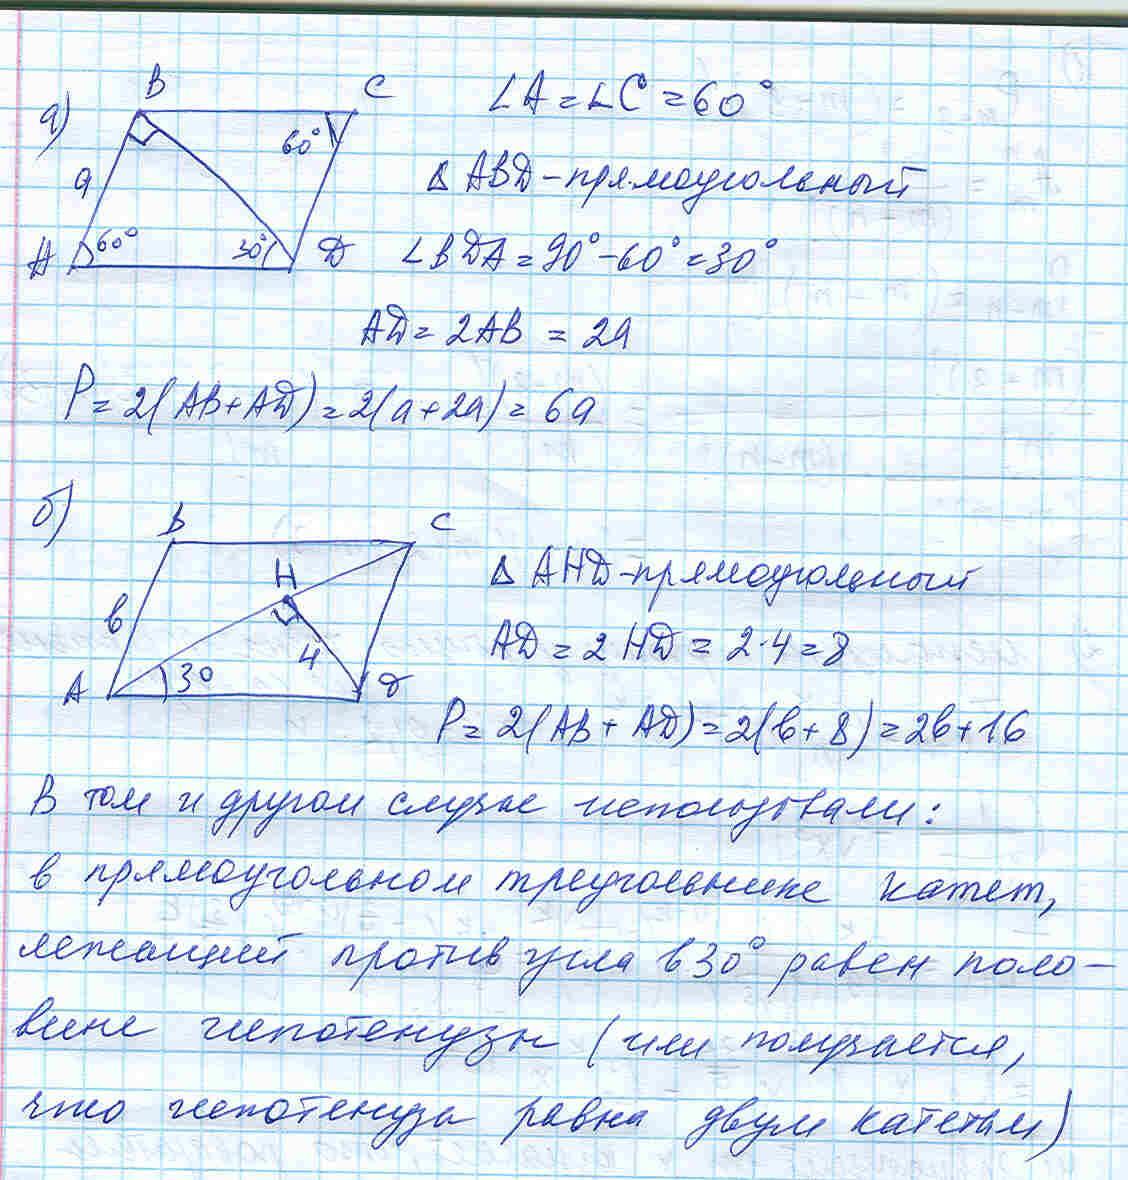 а)
B C
∠A = ∠C = 60°
60°
a
△ ABD – прямоугольный
A 60° 30° D
∠BDA = 90° – 60° = 30°
AD = 2AB = 2a
P = 2(AB + AD) = 2(a + 2a) = 6a
б)
B C
H
△ AHD – прямоугольный
в
4
AD = 2 HD = 2·4 = 8
A 30 D
P = 2(AB + AD) = 2(в + 8) = 2в + 16
В том и другом случае использовали:
в прямоугольном треугольнике катет,
лежащий против угла в 30° равен поло–
вине гипотенузы (или получается,
что гипотенуза равна двум катетам)